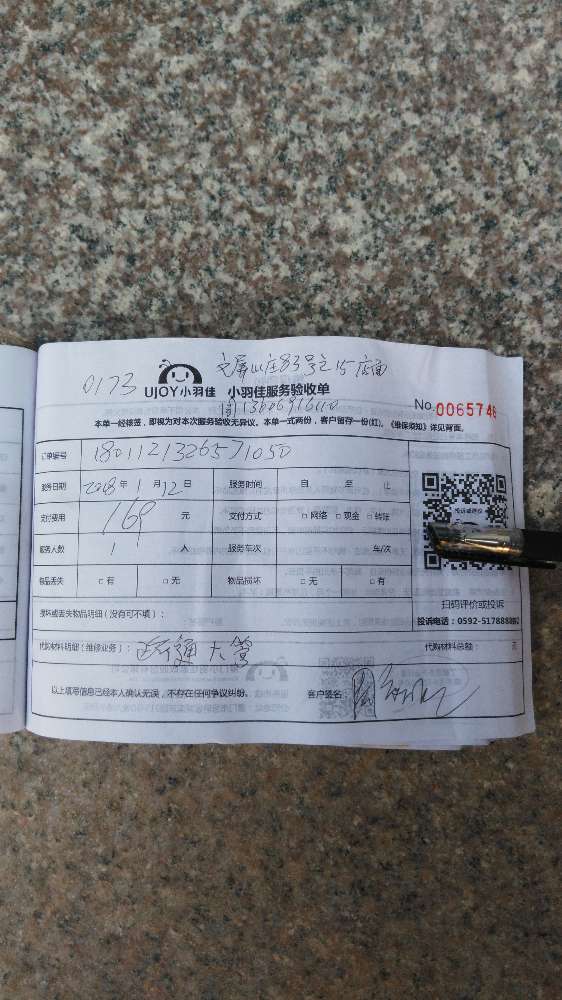 文屏山庄83号之15店面
0173
UJOY小羽佳 小羽佳服务验收单
No.0065746
本单一经核签，即视为对本次服务验收无异议。本单一式两份，客户留存一份(红)。《维保须知》详见背面。
订单编号 1801121326571050
服务日期 2018年1月12日 服务时间 自 至 止
支付费用 169 元 支付方式 □网络 □现金 □转账
服务人数 1 人 服务车次 车/次
物品丢失 □有 □无 物品损坏 □无 □有
投诉或评议
扫码评价或投诉
投诉电话：0592-5178888
损坏或丢失物品明细（没有可不填）：
代购材料明细(维修业务)： 疏通大管 代购材料总额： 元
以上填写信息已经本人确认无误，不存在任何争议纠纷。 客户签名：